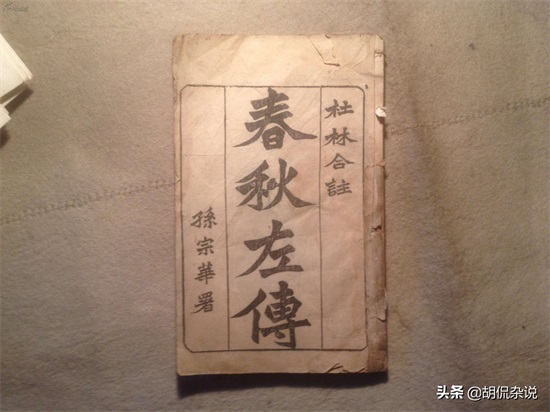 杜林合註
春秋左傳
孫宗華署
头条 @胡侃杂说